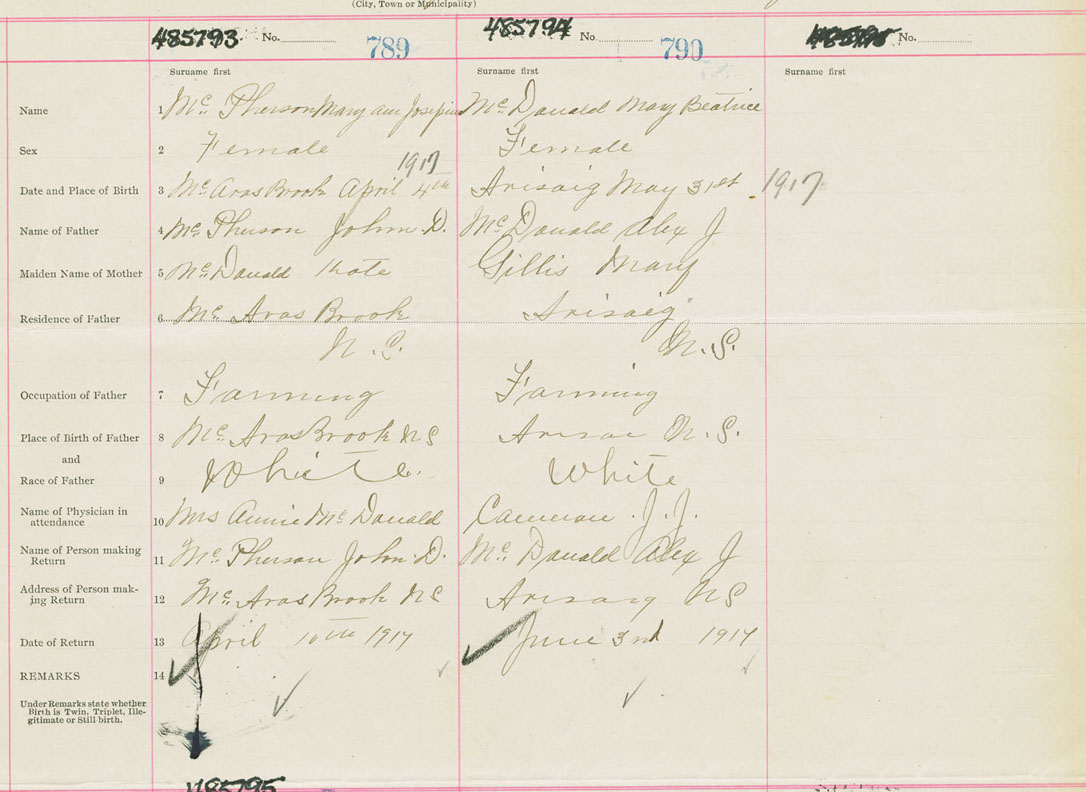 (City, Town or Municipality)
485793 No. 789 485794 No. 790 No.
Surname first Surname first Surname first
Name 1 Mc Pherson Mary ann Josephin Mc Donald Mary Beatrice
Sex 2 Female Female
1917
Date and Place of Birth 3 Mc Aras Brook April 4th Arisaig May 31st 1917
Name of Father 4 Mc Pherson John D. Mc Donald Alex J
Maiden Name of Mother 5 Mc Donald Kate Gillis Mary
Residence of Father 6 Mc Aras Brook Arisaig
N.S. N.S.
Occupation of Father 7 Farming Farming
Place of Birth of Father 8 Mc Aras Brook NS N.S.
and
Race of Father 9 White White
Name of Physician in attendance 10 Mrs Annie Mc Donald Cameron J.J.
Name of Person making Return 11 Mc Pherson John D. Mc Donald Alex J
Address of Person mak-ing Return 12 Mc Aras Brook NS Arisaig NS
Date of Return 13 April 10th 1917 June 3rd 1917
REMARKS 14
Under Remarks state whether
Birth is Twin, Triplet, Ille-
gitimate or Still birth.
485795